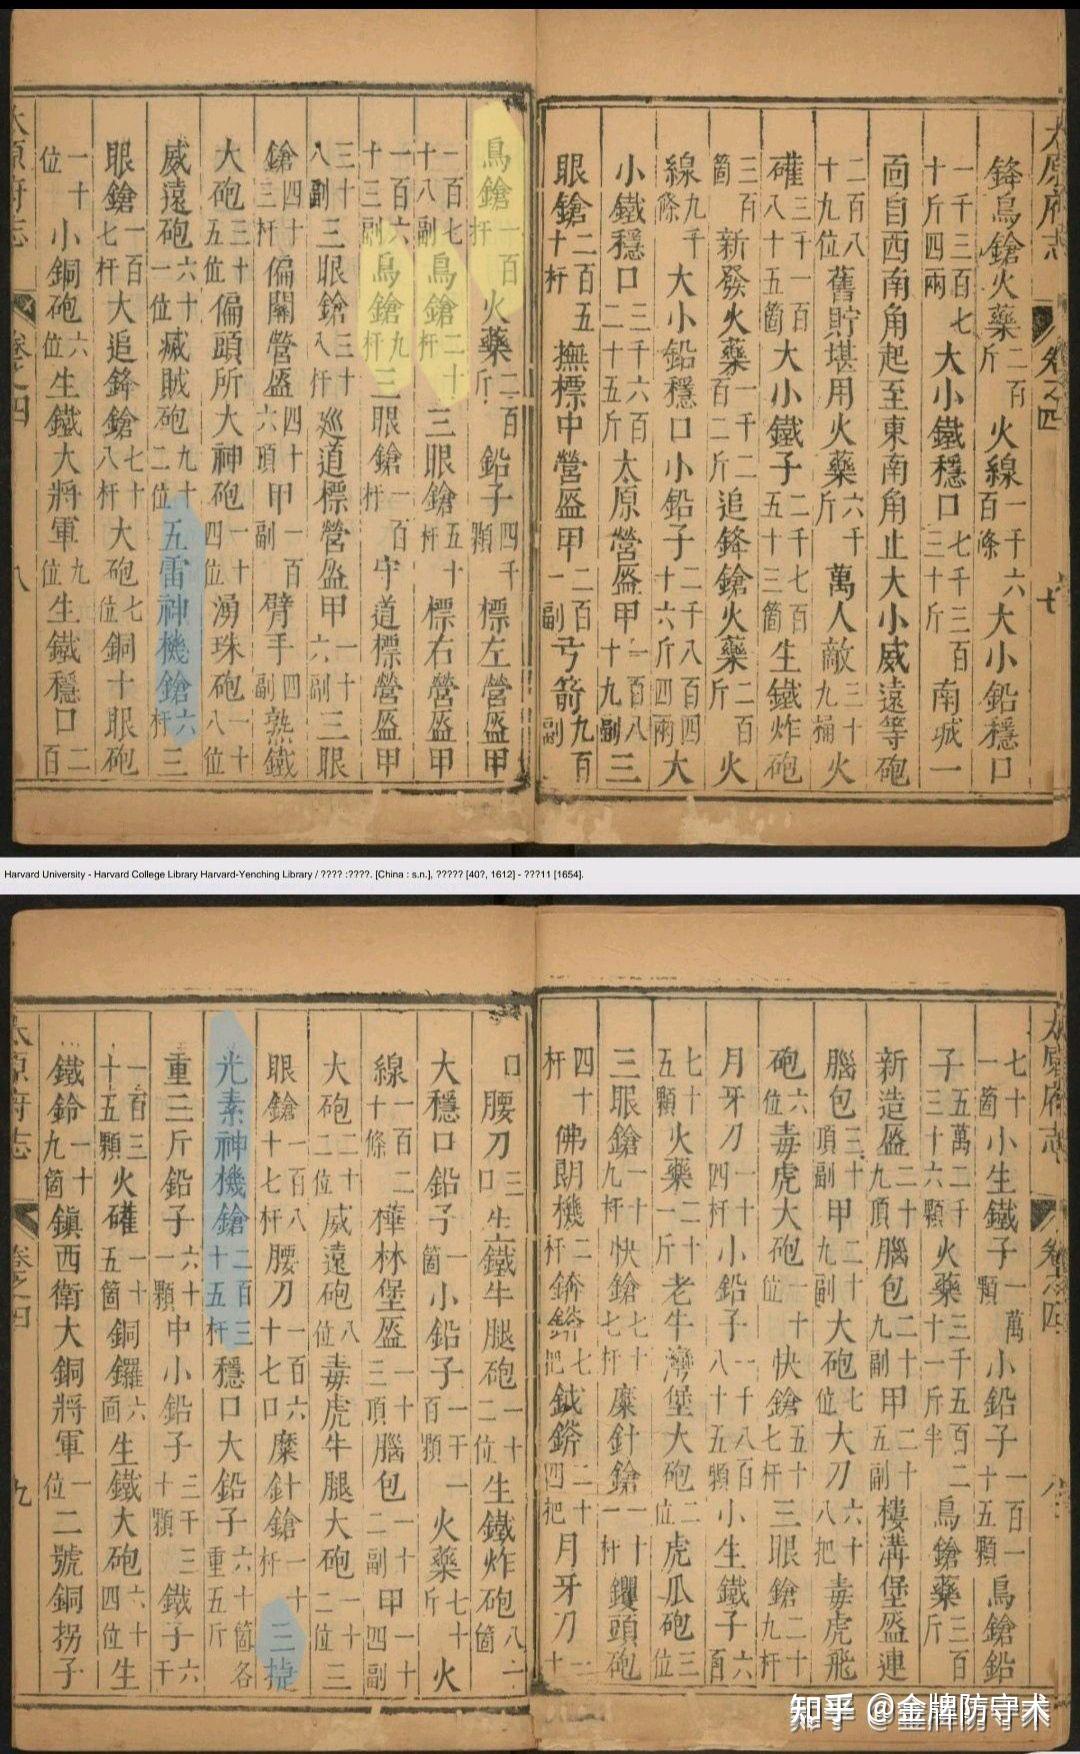 太原府志 卷之四 七
鋒鳥鎗火藥二百斤火線一千六百條大小鉛穩口
一千三百七十斤四兩大小鐵穩口七千三百三十斤南城一
面自西南角起至東南角止大小威遠等砲
二百八十九位舊貯堪用火藥六千斤萬人敵三十九桶火
礶三千一百八十五箇大小鐵子二千七百五十三箇生鐵炸砲
三百箇新發火藥一千二百二斤追鋒鎗火藥二百斤火
線九千條大小鉛穩口小鉛子二千八百四十六斤四兩大
小鐵穩口三千六百二十五斤太原營盔甲一百八十九副三
眼鎗二百五十杆撫標中營盔甲二百一副弓箭九百副
鳥鎗一百杆火藥二百斤鉛子四千顆標左營盔甲
一百七十八副鳥鎗二十杆三眼鎗五十杆標右營盔甲
一百六十三副鳥鎗九杆三眼鎗一百杆守道標營盔甲
三十八副三眼鎗三十八杆巡道標營盔甲一十六副三眼
鎗四十三杆偏關營盔四十六頂甲一百副臂手四副熟鐵
大砲三十五位偏頭所大神砲一十四位湧珠砲一十八位
威遠砲六十一位滅賊砲九十二位五雷神機鎗六杆三
眼鎗一百七杆大追鋒鎗七十八杆大砲七位銅十眼砲
一十位小銅砲六位生鐵大將軍九位生鐵穩口二百
太原府志 卷之四 八
Harvard University - Harvard College Library Harvard-Yenching Library / ???? :????. [China : s.n.], ????? [40?, 1612] - ???11 [1654].
太原府志 卷之四 八
七十一箇小生鐵子一萬顆小鉛子一百一十五顆鳥鎗鉛
子五萬二千三十六顆火藥三千五百二十一斤半鳥鎗藥三百斤
新造盔二十九頂腦包二十九副甲二十五副樓溝堡盔連
腦包三十頂副甲二十九副大砲七位大刀六十八把毒虎飛
砲六位毒虎大砲一十位快鎗五十七杆三眼鎗二十九杆
月牙刀一十四杆小鉛子一千八百八十五顆小生鐵子六百
七十五顆火藥二十斤老牛灣堡大砲二位虎爪砲三位
三眼鎗一十九杆快鎗七十七杆糜針鎗一十一杆钁頭砲
四十杆佛朗機二杆七把鉞二十四把月牙刀一十
口腰刀三口生鐵牛腿砲一十二位生鐵炸砲八箇
大穩口鉛子一箇小鉛子一千一百顆火藥七十斤火
線一百二十條樺林堡盔一十三頂腦包一十二副甲一十四副
大砲二十二位威遠砲八位毒虎牛腿大砲一十二位三
眼鎗一百八十七杆腰刀一百六十七口糜針鎗一十杆三捷
光素神機鎗二百三十五杆穩口大鉛子六十箇各重五斤
重三斤鉛子六十一顆中小鉛子二千三十顆鐵子六千
一百三十五顆火礶一十五箇銅鑼六面生鐵大砲六十四位生
鐵鈴一十九箇鎮西衛大銅將軍一位二號銅拐子
太原府志 卷之四 九
知乎 @金牌防守术